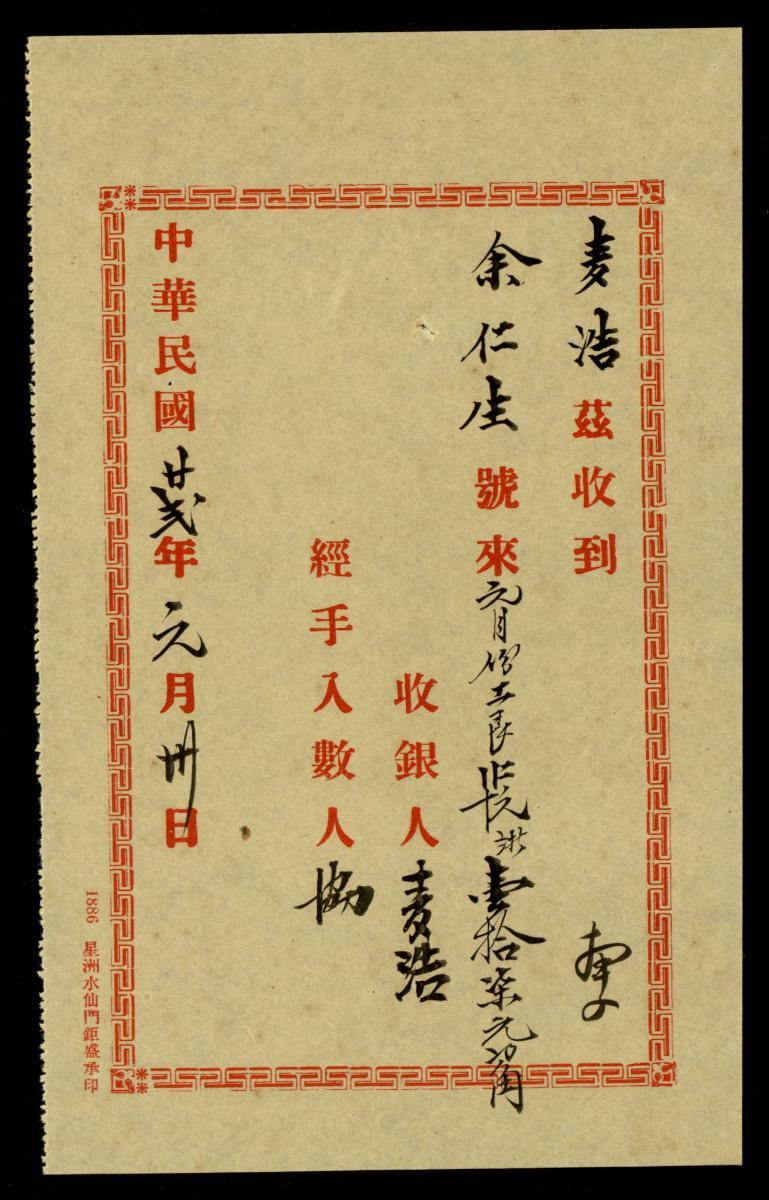 麦浩茲收到
余仁生號來元月份工艮 壹拾柒元 角
收銀人麦浩
經手入數人協
中華民國廿弍年元月卅日
1886 星洲水仙門鉅盛承印